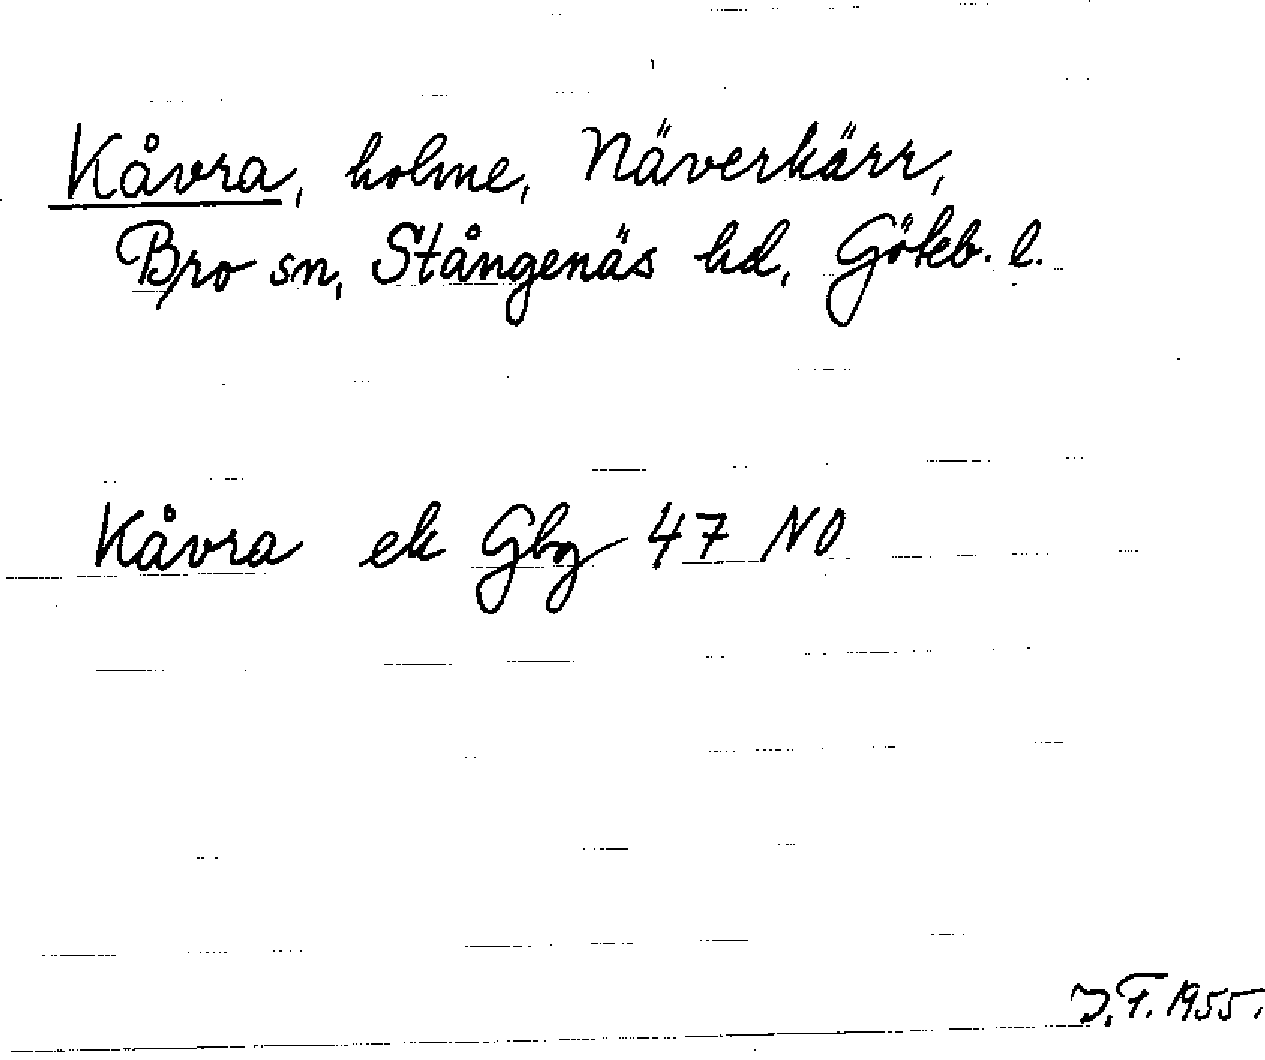 Kåvra, holme, Näverkärr,
Bro sn, Stångenäs hd, Göteb. l.
Kåvra ek Gbg 47 NO
J.F. 1955.